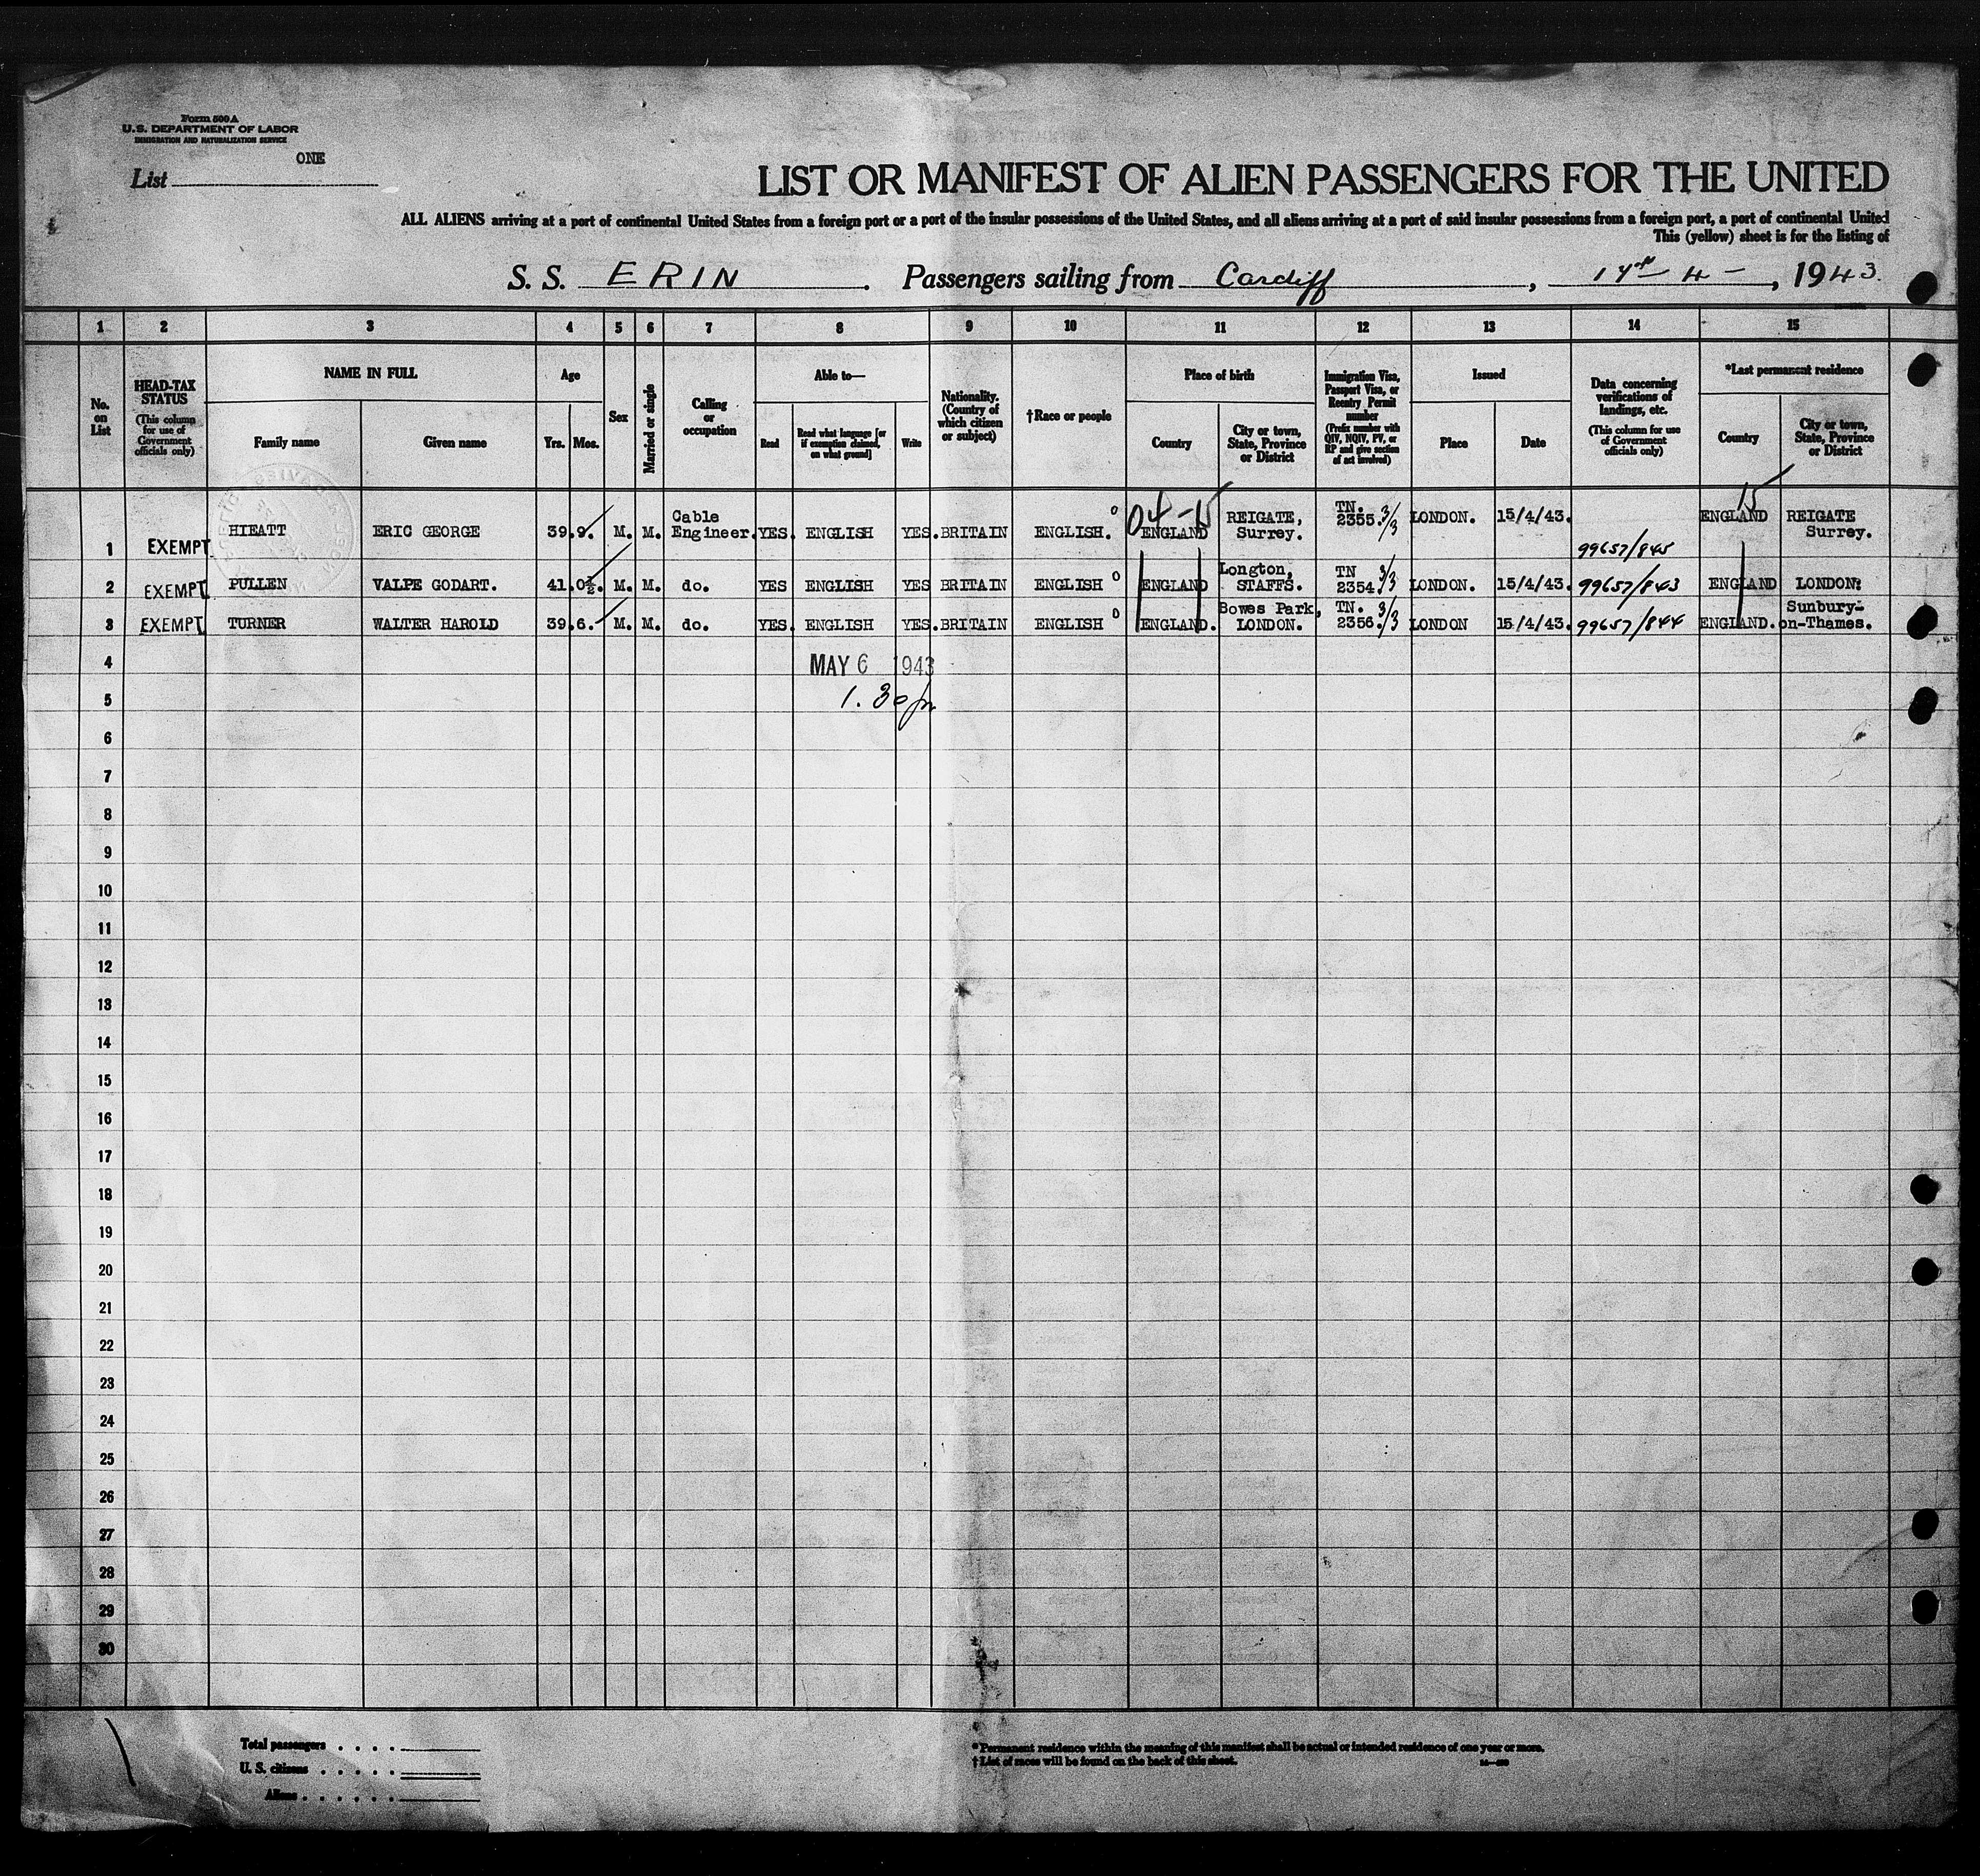 Form 500 A
U.S. DEPARTMENT OF LABOR
IMMIGRATION AND NATURALIZATION SERVICE
List ONE
LIST OR MANIFEST OF ALIEN PASSENGERS FOR THE UNITED
ALL ALIENS arriving at a port of continental United States from a foreign port or a port of the insular possessions of the United States, and all aliens arriving at a port of said insular possessions from a foreign port, a port of continental United
This (yellow) sheet is for the listing of
S. S. ERIN. Passengers sailing from Cardiff, 17th 4 -, 1943.
1 2 3 4 5 6 7 8 9 10 11 12 13 14 15
No. on List
HEAD-TAX STATUS
(This column for use of Government officials only)
NAME IN FULL
Family name
Given name
Age
Yrs. Mos.
Sex
Married or single
Calling or occupation
Able to—
Read
Read what language [or if exemption claimed, on what ground]
Write
Nationality. (Country of which citizen or subject)
†Race or people
Place of birth
Country
City or town, State, Province or District
Immigration Visa, Passport Visa, or Reentry Permit number
(Prefix number with QIV, NQIV, PV, or RP and give section of act involved)
Issued
Place
Date
Data concerning verifications of landings, etc.
(This column for use of Government officials only)
*Last permanent residence
Country
City or town, State, Province or District
04-15
15
1 EXEMPT HIEATT ERIC GEORGE 39. 9. M. M. Cable Engineer. YES. ENGLISH YES. BRITAIN ENGLISH. ENGLAND REIGATE, Surrey. TN. 2355. 3/3 LONDON. 15/4/43. 99657/845 ENGLAND REIGATE Surrey.
2 EXEMPT PULLEN VALPE GODART. 41. 0½. M. M. do. YES ENGLISH YES BRITAIN ENGLISH ENGLAND Longton, STAFFS. TN 2354. 3/3 LONDON. 15/4/43. 99657/843 ENGLAND LONDON.
3 EXEMPT TURNER WALTER HAROLD 39. 6. M. M. do. YES. ENGLISH YES. BRITAIN ENGLISH ENGLAND. Bowes Park, LONDON. TN. 2356. 3/3 LONDON 15/4/43. 99657/844 ENGLAND. Sunbury-on-Thames.
4 MAY 6 1943
5 1.30 pm
6
7
8
9
10
11
12
13
14
15
16
17
18
19
20
21
22
23
24
25
26
27
28
29
30
Total passengers . . . .
U. S. citizens . . . . .
Aliens . . . . . .
*Permanent residence within the meaning of this manifest shall be actual or intended residence of one year or more.
†List of races will be found on the back of this sheet.